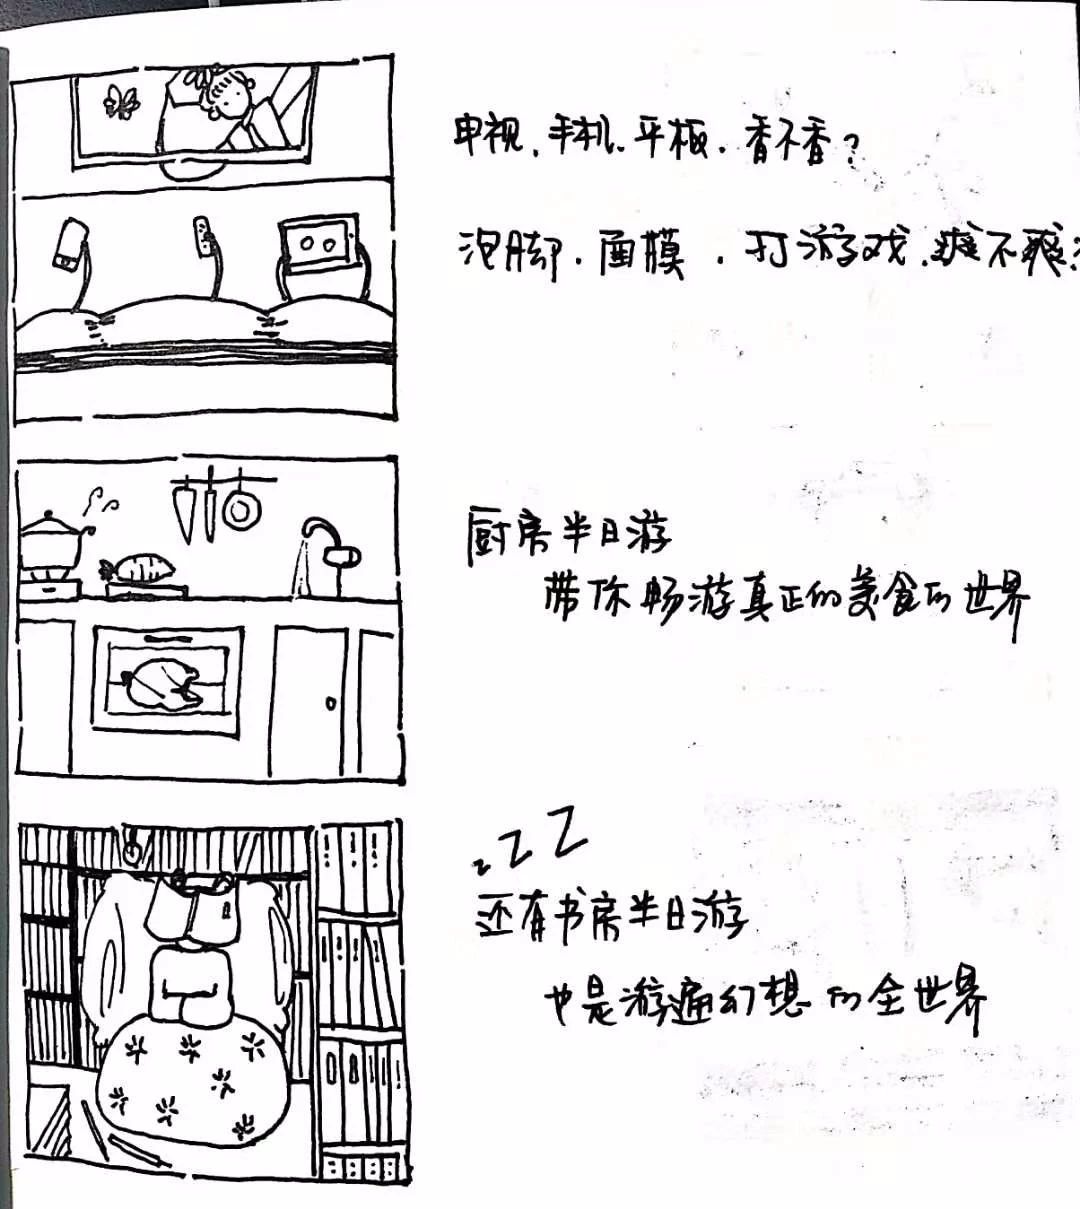 电视、手机、平板、香不香?
泡脚、面膜、打游戏、爽不爽?
厨房半日游
带你畅游真正的美食的世界
zZZ
还有书房半日游
也是游遍幻想的全世界